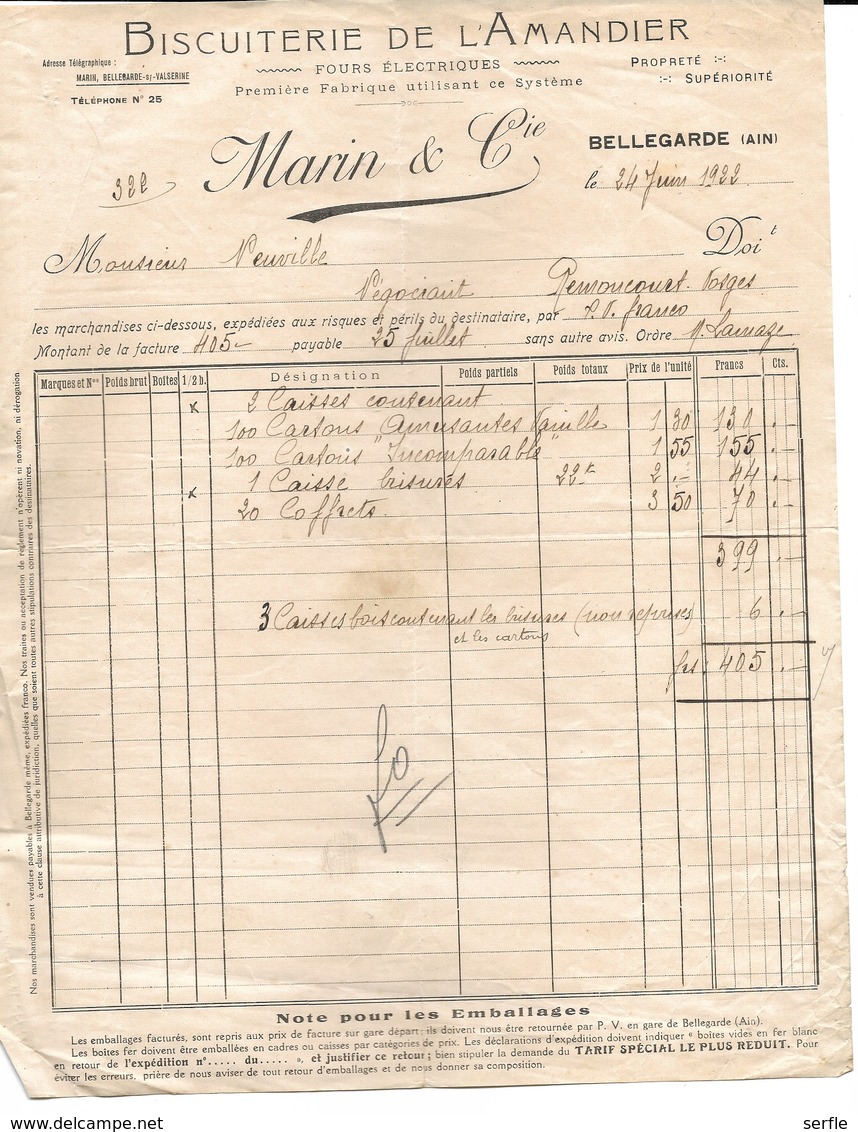 BISCUITERIE DE L'AMANDIER
Adresse Télégraphique :
MARIN, BELLEGARDE-s/-VALSERINE
TÉLÉPHONE N° 25
FOURS ÉLECTRIQUES
Première Fabrique utilisant ce Système
PROPRETÉ :-:
:-: SUPÉRIORITÉ
Marin & Cie
BELLEGARDE (AIN)
322
le 24 Juin 1922
Monsieur Neuville Doit
Négociant Remoncourt. Vosges
les marchandises ci-dessous, expédiées aux risques et périls du destinataire, par P. V. franco
Montant de la facture 405- payable 25 juillet sans autre avis. Ordre
Marques et Nos Poids brut Boites 1/2 b. Désignation Poids partiels Poids totaux Prix de l'unité Francs Cts.
x 2 Caisses contenant
100 Cartons Amusantes Vanille 1 30 130 .-
100 Cartons "Incomparable" 1 55 155 .-
x 1 Caisse brisures 22k 2 .- 44 .-
20 Coffrets 3 50 70 .-
399 .-
3 Caisses bois contenant les brisures (non reprises) 6 .-
et les cartons
frs : 405 .-
Nos marchandises sont vendues payables à Bellegarde même, expédiées franco. Nos traites ou acceptation de règlement n'opèrent ni novation, ni dérogation
à cette clause attributive de juridiction, quelles que soient toutes autres stipulations contraires des destinataires.
Note pour les Emballages
Les emballages facturés, sont repris aux prix de facture sur gare départ; ils doivent nous être retournée par P. V. en gare de Bellegarde (Ain).
Les boites fer doivent être emballées en cadres ou caisses par catégories de prix. Les déclarations d'expédition doivent indiquer « boites vides en fer blanc
en retour de l'expédition n°..... du..... », et justifier ce retour; bien stipuler la demande du TARIF SPÉCIAL LE PLUS REDUIT. Pour
éviter les erreurs, prière de nous aviser de tout retour d'emballages et de nous donner sa composition.
serfle